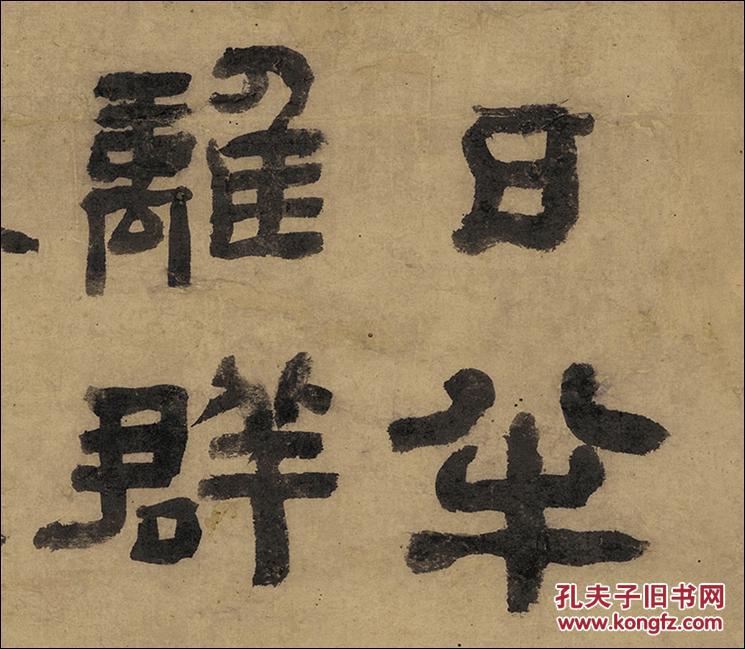 日半
離群
孔夫子旧书网
www.kongfz.com